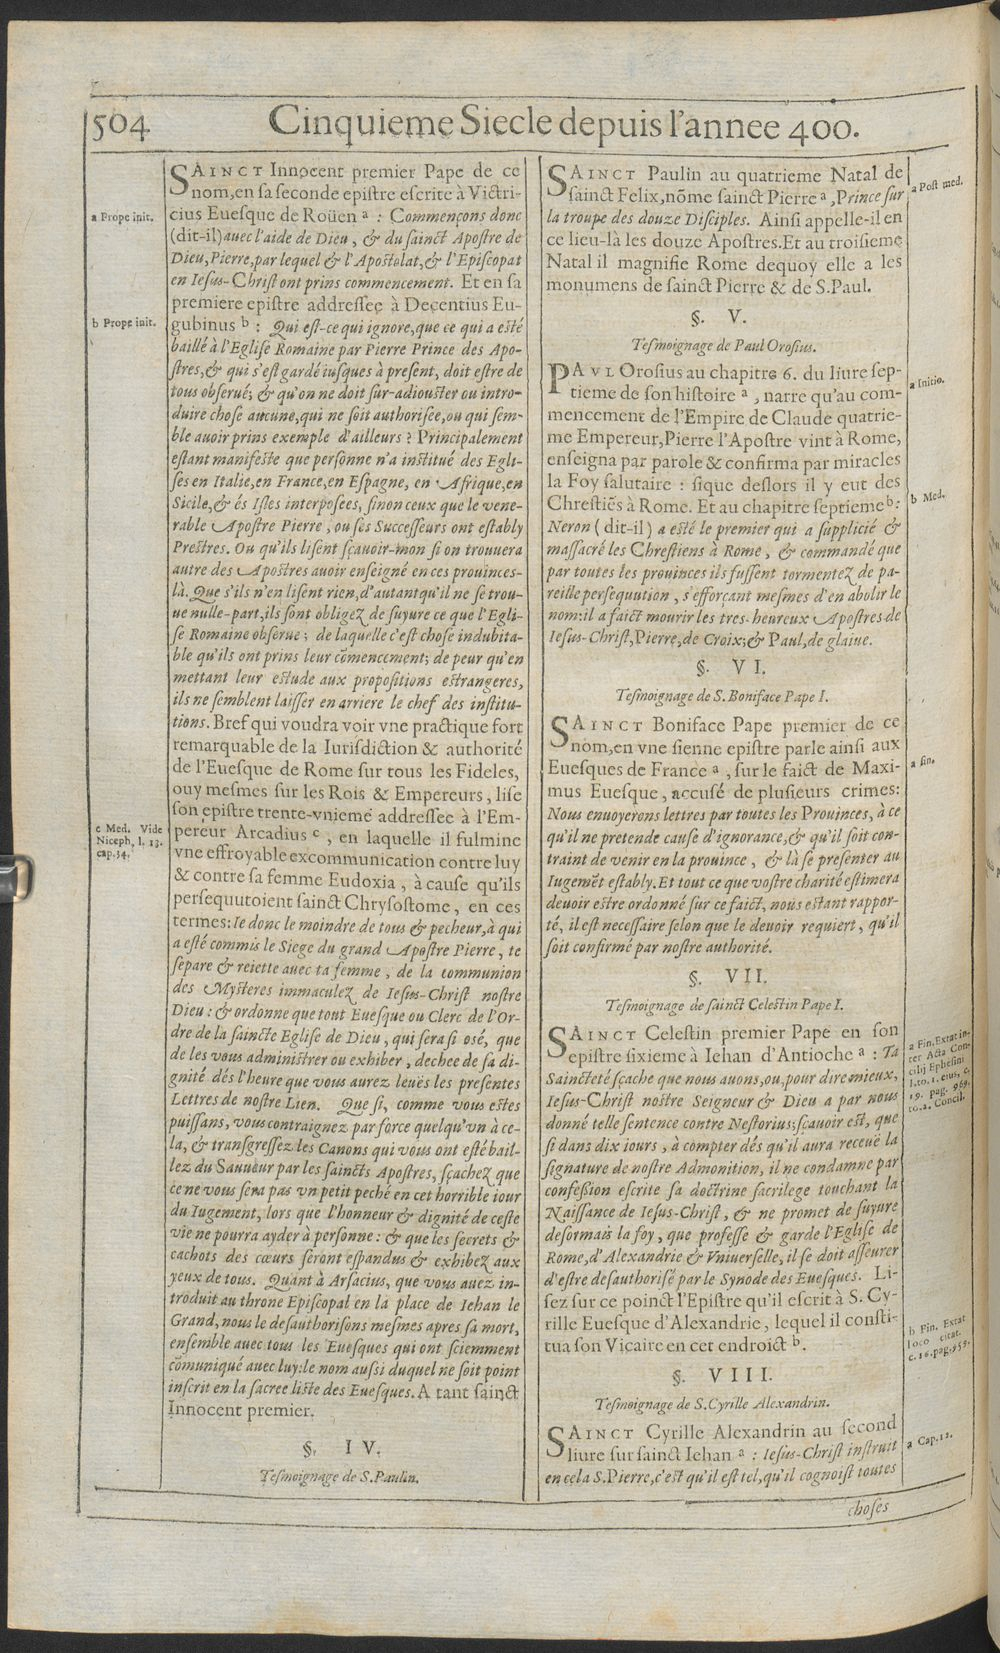 504
Cinquieme Siecle depuis l'annee 400.
SAINCT Innocent premier Pape de ce
nom, en sa seconde epistre escrite à Victri-
a Prope init.
cius Euesque de Roüen a : Commençons donc
(dit-il) auec l'aide de Dieu, & du sainct Apostre de
Dieu, Pierre, par lequel & l'Apostolat, & l'Episcopat
en Iesus-Christ ont prins commencement. Et en sa
premiere epistre addressee à Decentius Eu-
b Prope init.
gubinus b : Qui est-ce qui ignore, que ce qui a esté
baillé à l'Eglise Romaine par Pierre Prince des Apo-
stres, & qui s'est gardé iusques à present, doit estre de
tous obserué; & qu'on ne doit sur-adiouster ou intro-
duire chose aucune, qui ne soit authorisee, ou qui sem-
ble auoir prins exemple d'ailleurs ? Principalement
estant manifeste que personne n'a institué des Egli-
ses en Italie, en France, en Espagne, en Afrique, en
Sicile, & és Isles interposees, sinon ceux que le vene-
rable Apostre Pierre, ou ses Successeurs ont estably
Prestres. Ou qu'ils lisent sçauoir-mon si on trouuera
autre des Apostres auoir enseigné en ces prouinces-
là. Que s'ils n'en lisent rien, d'autant qu'il ne se trou-
ue nulle-part, ils sont obligez de suyure ce que l'Egli-
se Romaine obserue ; de laquelle c'est chose indubita-
ble qu'ils ont prins leur cõmencement; de peur qu'en
mettant leur estude aux propositions estrangeres,
ils ne semblent laisser en arriere le chef des institu-
tions. Bref qui voudra voir vne practique fort
remarquable de la Iurisdiction & authorité
de l'Euesque de Rome sur tous les Fideles,
ouy mesmes sur les Rois & Empereurs, lise
son epistre trente-vnieme addressee à l'Em-
c Med. Vide
Niceph, l. 13.
cap. 34.
pereur Arcadius c, en laquelle il fulmine
vne effroyable excommunication contre luy
& contre sa femme Eudoxia, à cause qu'ils
persequutoient sainct Chrysostome, en ces
termes: Ie donc le moindre de tous & pecheur, à qui
a esté commis le Siege du grand Apostre Pierre, te
separe & reiette auec ta femme, de la communion
des Mysteres immaculez de Iesus-Christ nostre
Dieu : & ordonne que tout Euesque ou Clerc de l'Or-
dre de la saincte Eglise de Dieu, qui sera si osé, que
de les vous administrer ou exhiber, dechee de sa di-
gnité dés l'heure que vous aurez leuës les presentes
Lettres de nostre Lien. Que si, comme vous estes
puissans, vous contraignez par force quelqu'vn à ce-
la, & transgressez les Canons qui vous ont esté bail-
lez du Sauueur par les saincts Apostres, sçachez que
ce ne vous sera pas vn petit peché en cet horrible iour
du Iugement, lors que l'honneur & dignité de ceste
vie ne pourra ayder à personne : & que les secrets &
cachots des cœurs seront espandus & exhibez aux
yeux de tous. Quant à Arsacius, que vous auez in-
troduit au throne Episcopal en la place de Iehan le
Grand, nous le desauthorisons mesmes apres sa mort,
ensemble auec tous les Euesques qui ont sciemment
cõmuniqué auec luy: le nom aussi duquel ne soit point
inscrit en la sacree liste des Euesques. A tant sainct
Innocent premier.
§. IV.
Tesmoignage de S. Paulin.
SAINCT Paulin au quatrieme Natal de
a Post med.
sainct Felix, nõme sainct Pierre a, Prince sur
la troupe des douze Disciples. Ainsi appelle-il en
ce lieu-là les douze Apostres. Et au troisieme
Natal il magnifie Rome dequoy elle a les
monumens de sainct Pierre & de S. Paul.
§. V.
Tesmoignage de Paul Orosius.
PAVL Orosius au chapitre 6. du liure sep-
a Initio.
tieme de son histoire a, narre qu'au com-
mencement de l'Empire de Claude quatrie-
me Empereur, Pierre l'Apostre vint à Rome,
enseigna par parole & confirma par miracles
la Foy salutaire : sique deslors il y eut des
b Med.
Chrestiẽs à Rome. Et au chapitre septieme b:
Neron (dit-il) a esté le premier qui a supplicié &
massacré les Chrestiens à Rome, & commandé que
par toutes les prouinces ils fussent tormentez de pa-
reille persequution, s'efforçant mesmes d'en abolir le
nom: il a faict mourir les tres-heureux Apostres de
Iesus-Christ, Pierre, de Croix; & Paul, de glaiue.
§. VI.
Tesmoignage de S. Boniface Pape I.
SAINCT Boniface Pape premier de ce
nom, en vne sienne epistre parle ainsi aux
a fin.
Euesques de France a, sur le faict de Maxi-
mus Euesque, accusé de plusieurs crimes:
Nous enuoyerons lettres par toutes les Prouinces, à ce
qu'il ne pretende cause d'ignorance, & qu'il soit con-
traint de venir en la prouince, & là se presenter au
Iugemẽt estably. Et tout ce que vostre charité estimera
deuoir estre ordonné sur ce faict, nous estant rappor-
té, il est necessaire selon que le deuoir requiert, qu'il
soit confirmé par nostre authorité.
§. VII.
Tesmoignage de sainct Celestin Pape I.
SAINCT Celestin premier Pape en son
a Fin. Extat in-
ter Acta Con-
cilij Ephesini
l. to. 1. eius, c.
19. pag. 969.
to. 2. Concil.
epistre sixieme à Iehan d'Antioche a : Ta
Saincteté sçache que nous auons, ou, pour dire mieux,
Iesus-Christ nostre Seigneur & Dieu a par nous
donné telle sentence contre Nestorius; sçauoir est, que
si dans dix iours, à compter dés qu'il aura receuë la
signature de nostre Admonition, il ne condamne par
confession escrite sa doctrine sacrilege touchant la
Naissance de Iesus-Christ, & ne promet de suyure
desormais la foy, que professe & garde l'Eglise de
Rome, d'Alexandrie & Vniuerselle, il se doit asseurer
d'estre desauthorisé par le Synode des Euesques. Li-
sez sur ce poinct l'Epistre qu'il escrit à S. Cy-
rille Euesque d'Alexandrie, lequel il consti-
b Fin. Extat
loco citat.
c. 16. pag. 959.
tua son Vicaire en cet endroict b.
§. VIII.
Tesmoignage de S. Cyrille Alexandrin.
SAINCT Cyrille Alexandrin au second
a Cap. 12.
liure sur sainct Iehan a : Iesus-Christ instruit
en cela S. Pierre, c'est qu'il est tel, qu'il cognoist toutes
choses